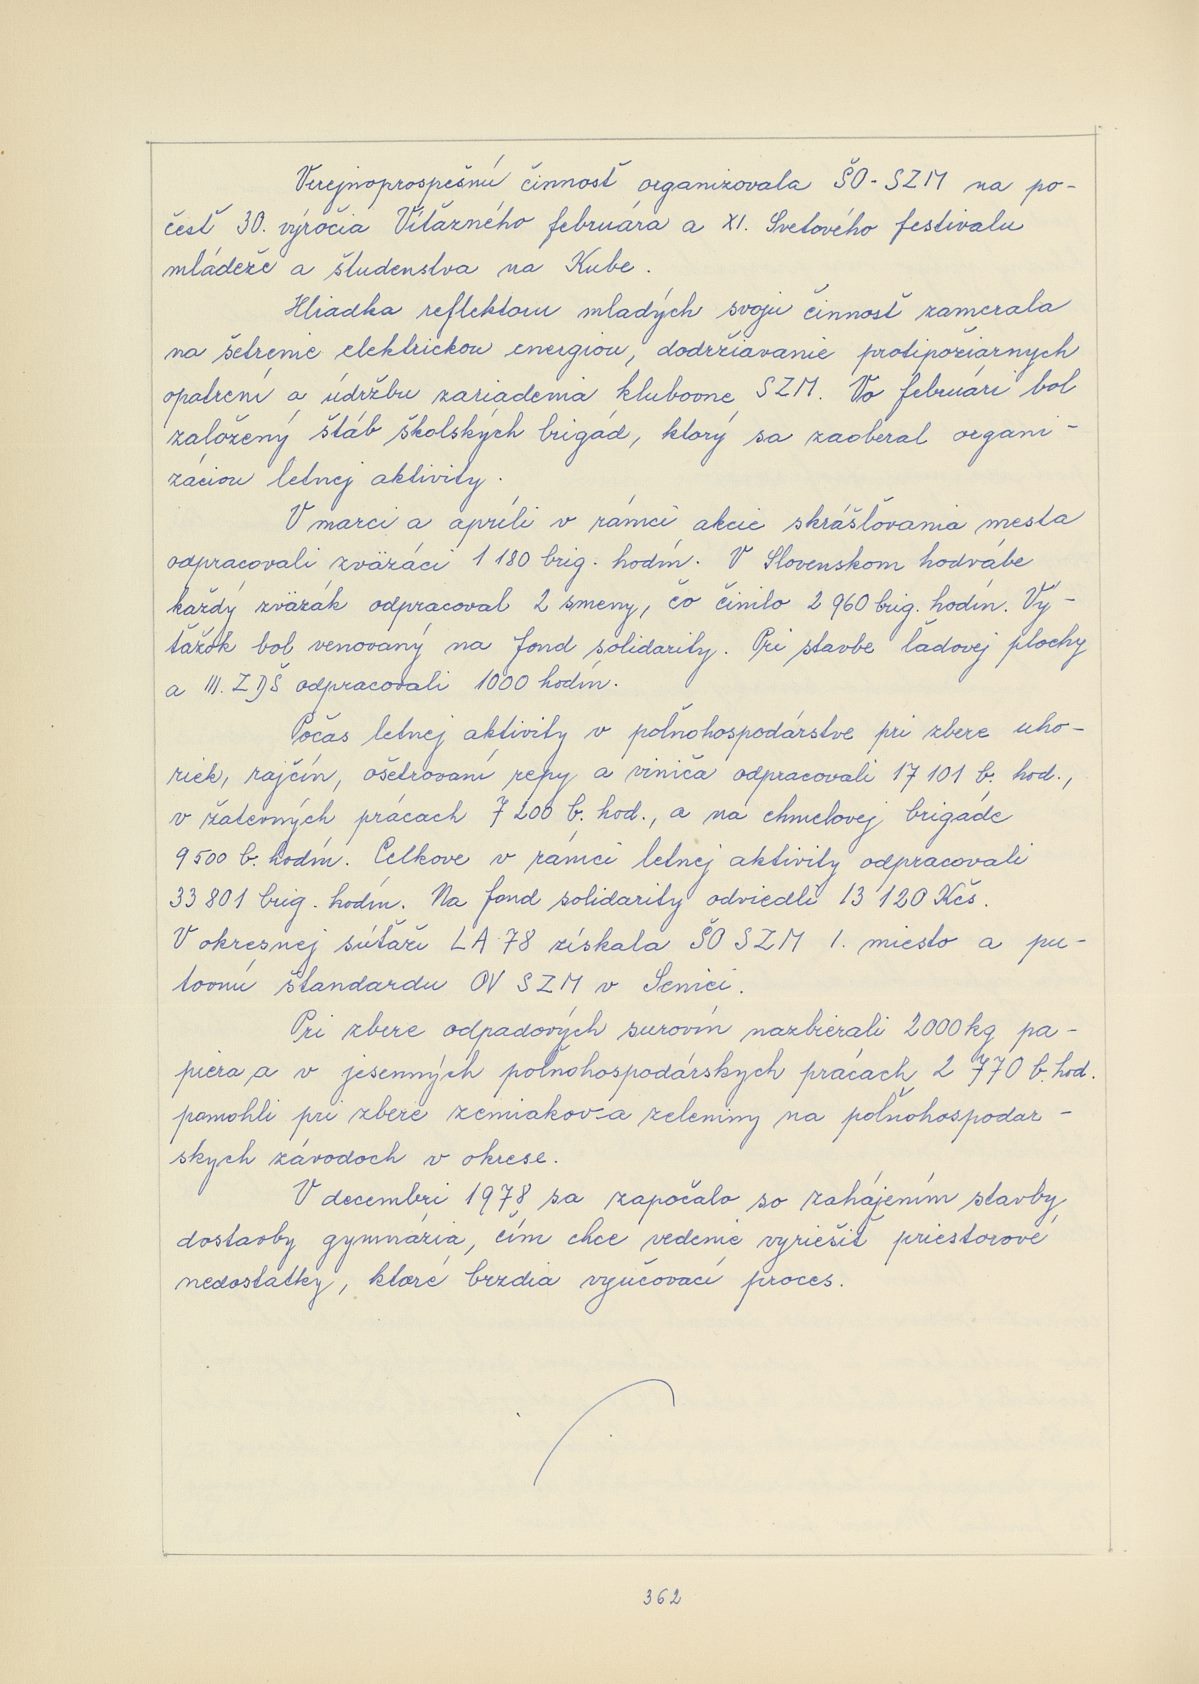 Verejnoprospešnú činnosť organizovala ŠO-SZM na po-
česť 30. výročia Víťazného februára a XI. Svetového festivalu
mládeže a študenstva na Kube.
Hliadka reflektoru mladých svoju činnosť zamerala
na šetrenie elektrickou energiou, dodržiavanie protipožiarnych
opatrení a údržbu zariadenia klubovne SZM. Vo februári bol
založený štáb školských brigád, ktorý sa zaoberal organi-
záciou letnej aktivity.
V marci a apríli v rámci akcie skrášľovania mesta
odpracovali zväzáci 1 180 brig. hodín. V Slovenskom hodvábe
každý zväzák odpracoval 2 smeny, čo činilo 2 960 brig. hodín. Vý-
ťažok bol venovaný na fond solidarity. Pri stavbe ľadovej plochy
a III. ZDŠ odpracovali 1000 hodín.
Počas letnej aktivity v poľnohospodárstve pri zbere uho-
riek, rajčín, ošetrovaní repy a viniča odpracovali 17 101 b. hod.,
v žatevných prácach 7 200 b. hod., a na chmelovej brigáde
9 500 b. hodín. Celkove v rámci letnej aktivity odpracovali
33 801 brig. hodín. Na fond solidarity odviedli 13 120 Kčs.
V okresnej súťaži LA 78 získala ŠO SZM 1. miesto a pu-
tovnú štandardu OV SZM v Senici.
Pri zbere odpadových surovín nazbierali 2000 kg pa-
piera a v jesenných poľnohospodárskych prácach 2 770 b. hod.
pomohli pri zbere zemiakov a zeleniny na poľnohospodár-
skych závodoch v okrese.
V decembri 1978 sa započalo so zahájením stavby
dostavby gymnázia, čím chce vedenie vyriešiť priestorové
nedostatky, ktoré brzdia vyučovací proces.
362